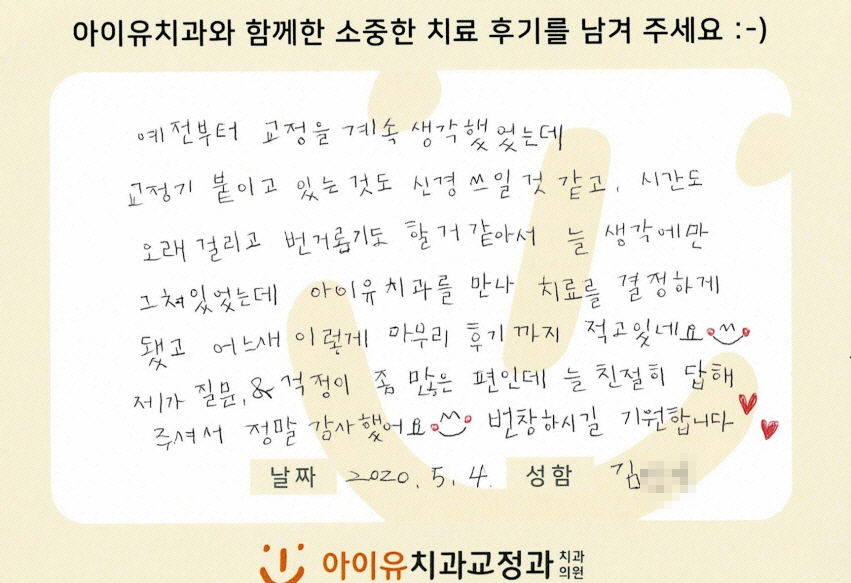 아이유치과와 함께한 소중한 치료 후기를 남겨 주세요 :-)
예전부터 교정을 계속 생각했었는데
교정기 붙이고 있는것도 신경 쓰일 것 같고, 시간도
오래 걸리고 번거롭기도 할 거 같아서 늘 생각에만
그쳐있었는데 아이유치과를 만나 치료를 결정하게
됐고 어느새 이렇게 마무리 후기까지 적고있네요
제가 질문,& 걱정이 좀 많은 편인데 늘 친절히 답해
주셔서 정말 감사했어요 번창하시길 기원합니다
날짜 2020. 5. 4. 성함 김
아이유치과교정과 치과
의원